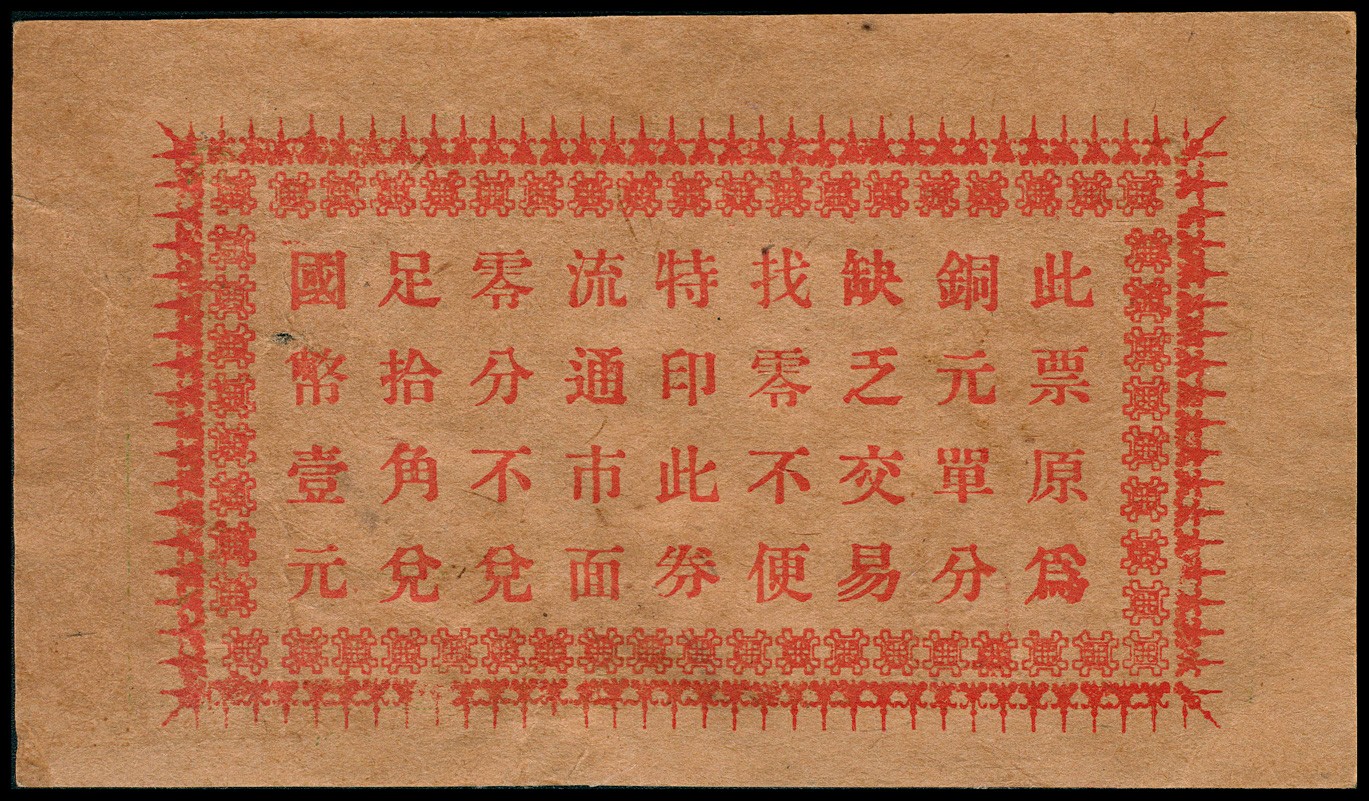 此票原爲
銅元單分
缺乏交易
找零不便
特印此券
流通市面
零分不兌
足拾角兌
國幣壹元